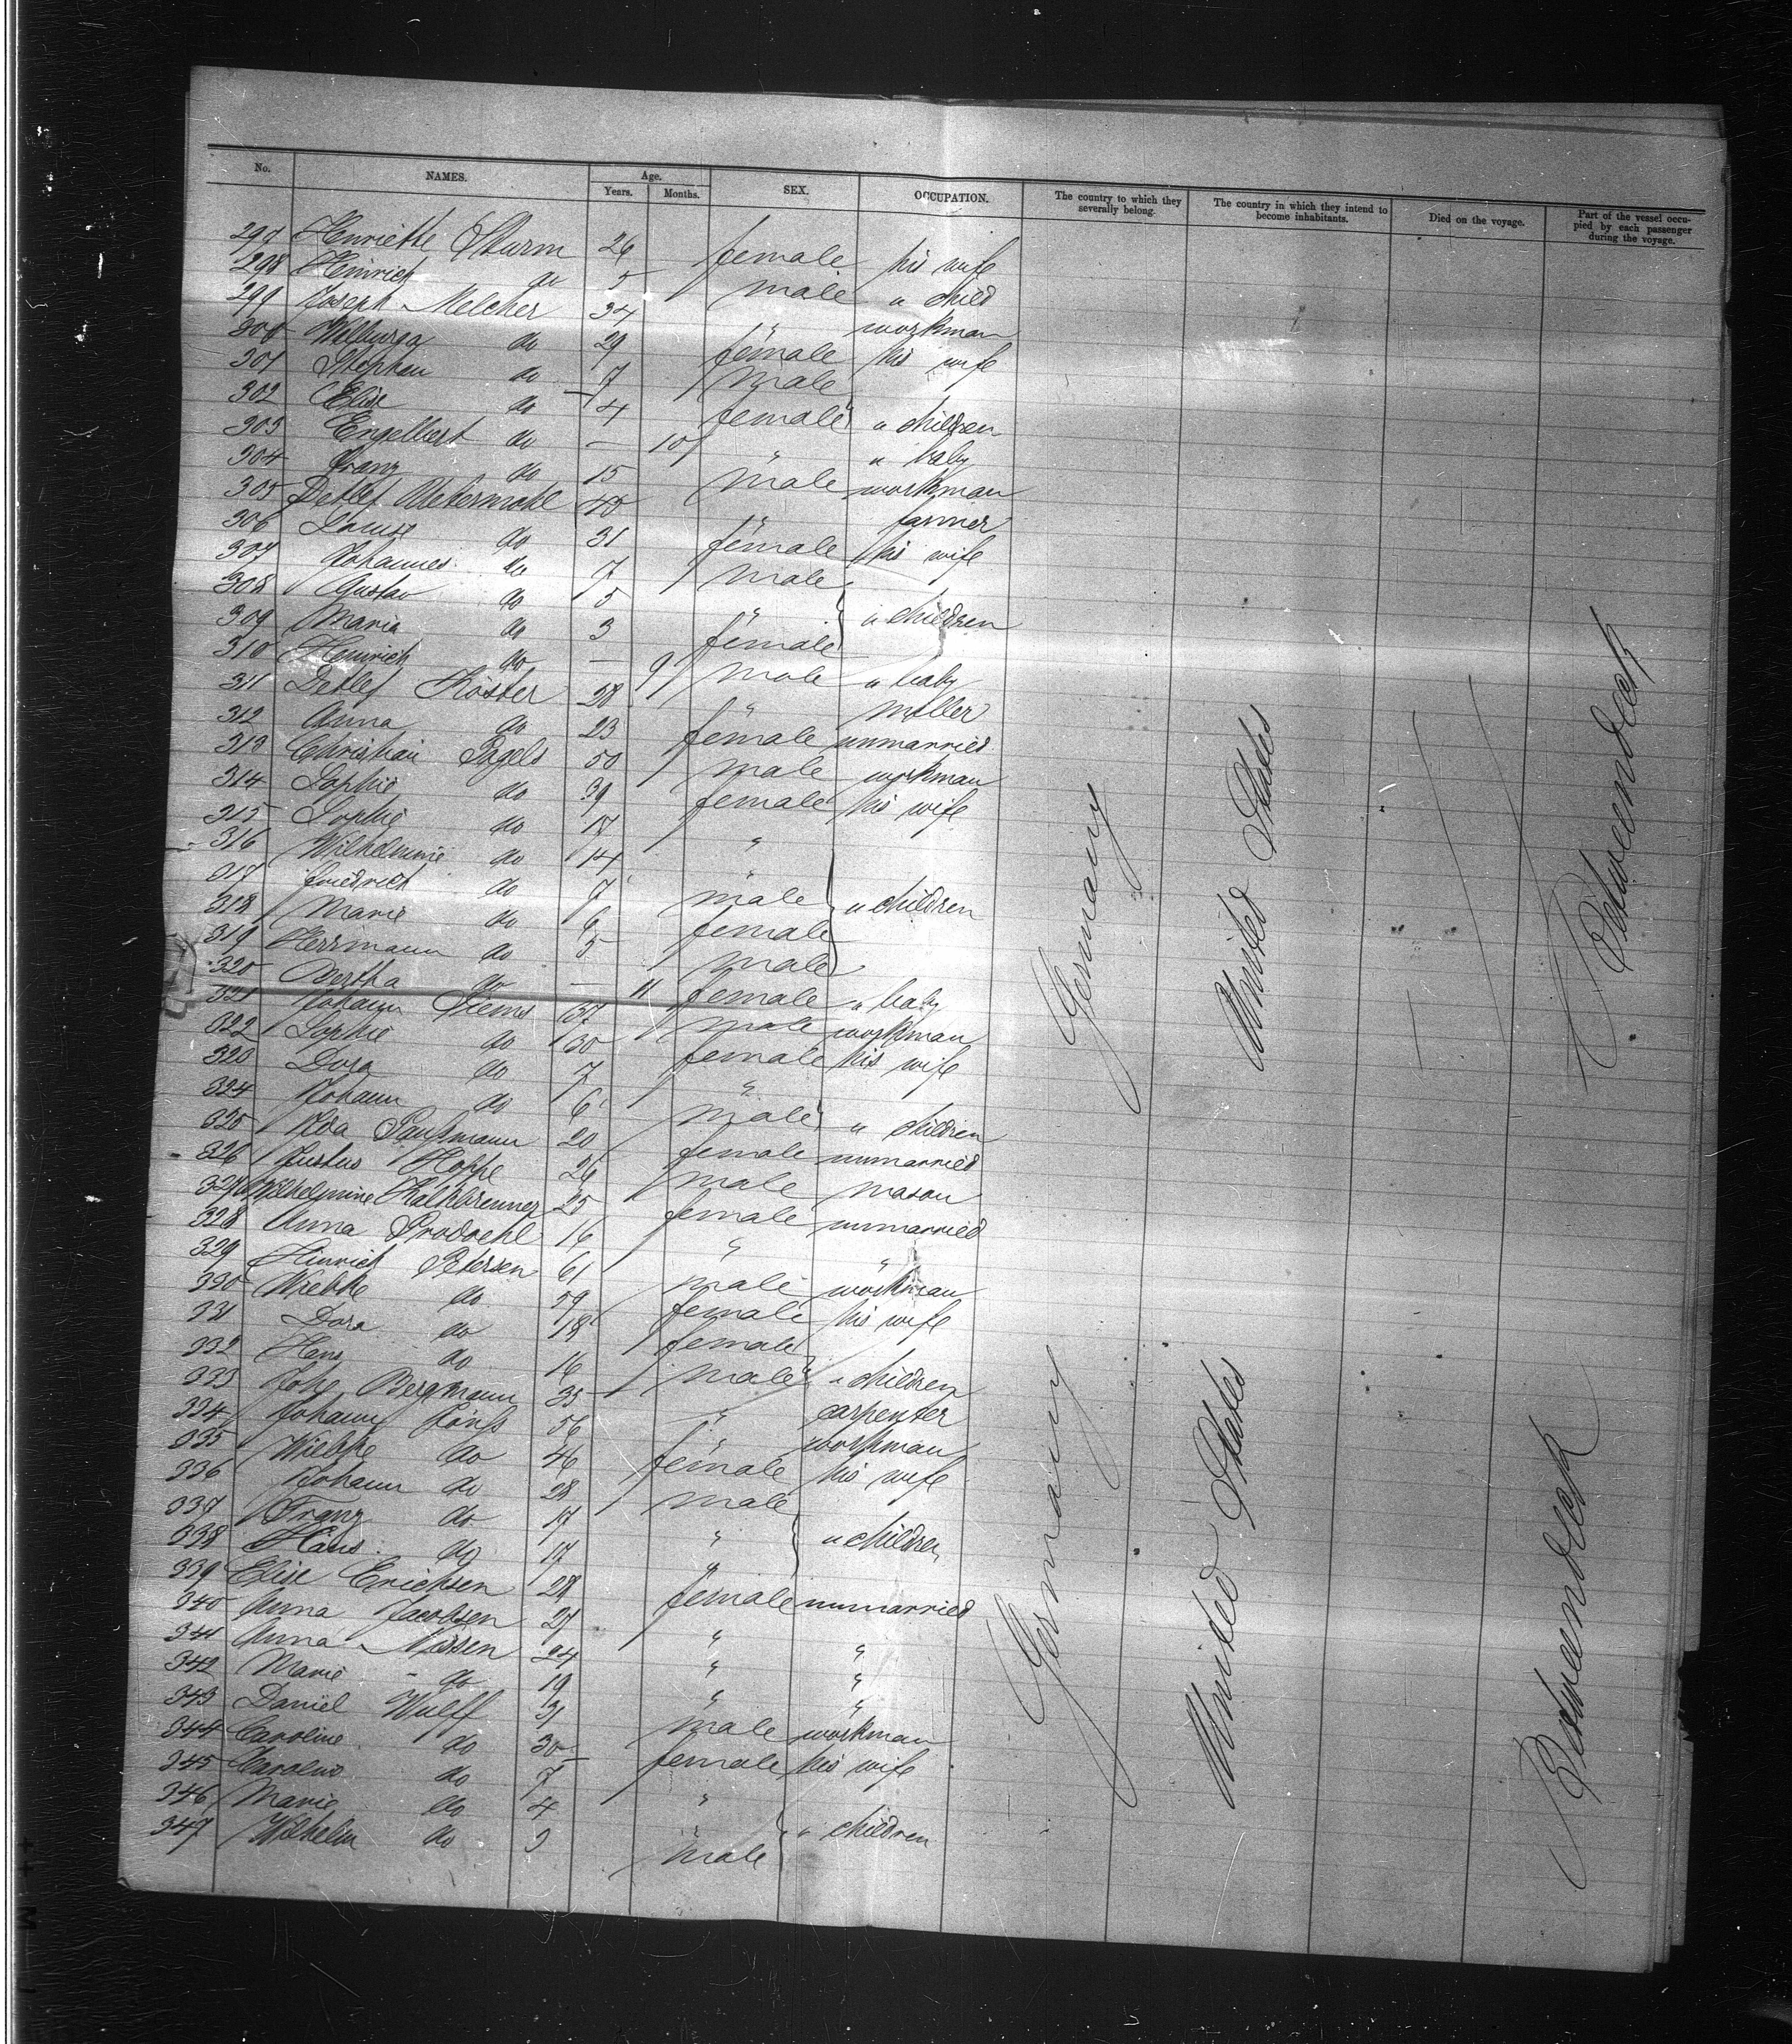 No. NAMES. Age. Years. Months. SEX. OCCUPATION. The country to which they severally belong. The country in which they intend to become inhabitants. Died on the voyage. Part of the vessel occupied by each passenger during the voyage.
297 Henriette Sturm 26 female his wife
298 Heinrich do 5 male " child
299 Joseph Melcher 34 " workman
300 Walburga do 29 female his wife
301 Stephan do 7 male
302 Elise do 4 female " children
303 Engelbert do — 10 " " baby
304 Franz do 15 male workman
305 Detlef 40 " farmer
306 Louise do 31 female his wife
307 Johannes do 7 male
308 Gustav do 5 " " children
309 Maria do 3 female
310 Heinrich do — 9 male " baby
311 Detlef Köster 28 " miller
312 Anna do 23 female unmarried
313 Christian Pagels 50 male workman
314 Sophie do 39 female his wife
315 Sophie do 17 "
316 Wilhelmine do 14 "
317 Friedrich do 7 male " children
318 Marie do 6 female
319 Herrmann do 5 male
320 Bertha do — 11 female " baby
321 Johann 37 male workman
322 Sophie do 30 female his wife
323 Dora do 7 "
324 Johann do 6 male " children
325 20 female unmarried
326 Justus Hoppe 26 male mason
327 Wilhelmine Kalkbrenner 25 female unmarried
328 Anna 16 " "
329 Hinrich Petersen 61 male workman
330 Wiebke do 59 female his wife
331 Dora do 18 female
332 Hans do 16 male " children
333 Johs Bergmann 35 " carpenter
334 Johann 56 " workman
335 Wiebke do 46 female his wife
336 Johann do 28 male
337 Franz do 17 " " children
338 Hans do 17 "
339 Elise Erichsen 28 female unmarried
340 Anna Jacobsen 27 " "
341 Anna Nissen 24 " "
342 Marie do 19 " "
343 Daniel Wulff 31 male workman
344 Caroline do 30 female his wife
345 do 7 "
346 Marie do 4 " " children
347 Wilhelm do 3 male
Germany
United States
Betweendeck
Germany
United States
Betweendeck